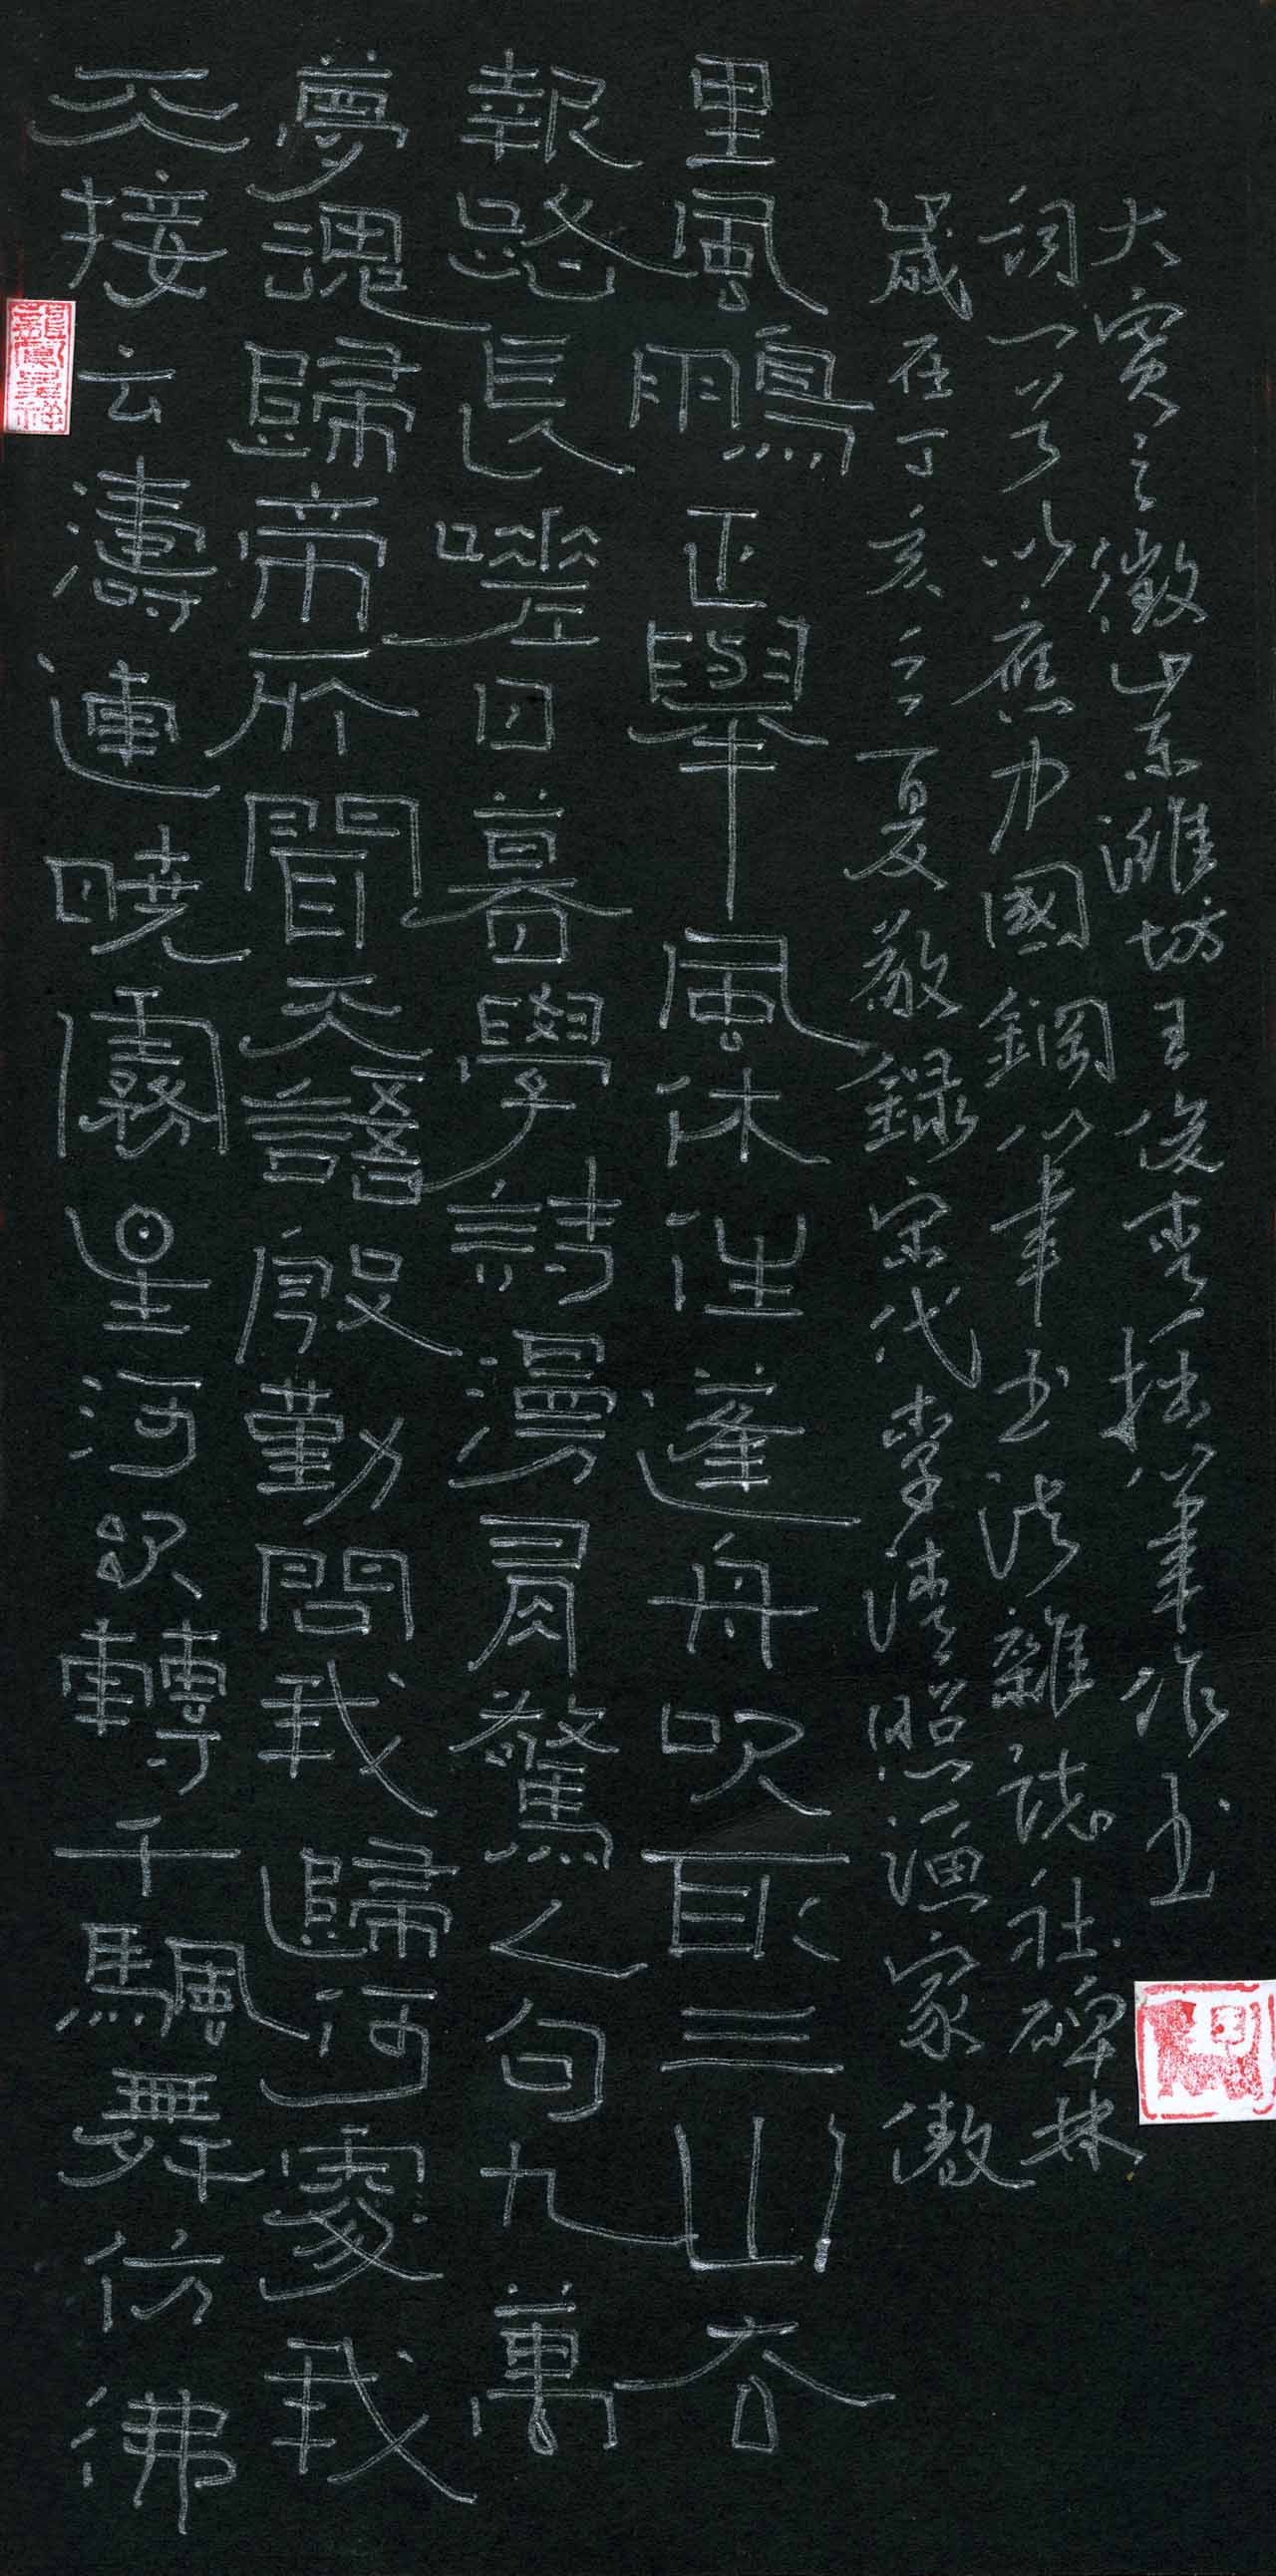 天接云濤連曉霧星河欲轉千颿舞仿佛
夢魂歸帝所聞天語殷勤問我歸何處我
報路長嗟日暮學詩漫有驚人句九萬
里風鵬正舉風休住蓬舟吹取三山去
歲在丁亥之夏敬録宋代李清照漁家傲
詞一首以應中國鋼筆书法雜誌社碑林
大賽之徵山东濰坊王俊拙筆作书
龍鳳呈祥